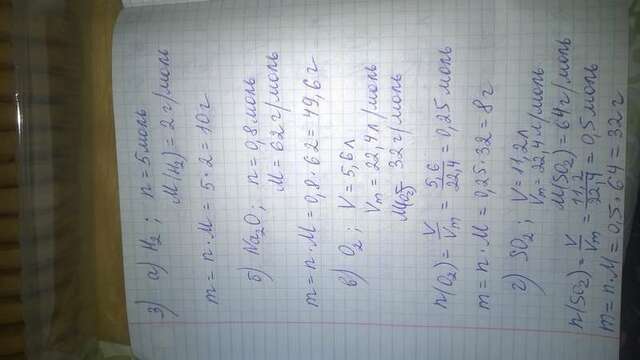 3) а) H₂ ; n = 5 моль
M(H₂) = 2 г/моль
m = n · M = 5 · 2 = 10 г
б) Na₂O ; n = 0,8 моль
M = 62 г/моль
m = n · M = 0,8 · 62 = 49,6 г
в) O₂ ; V = 5,6 л
Vm = 22,4 л/моль
M(O₂) 32 г/моль
n(O₂) = V/Vm = 5,6/22,4 = 0,25 моль
m = n · M = 0,25 · 32 = 8 г
г) SO₂ ; V = 11,2 л
Vm = 22,4 л/моль
M(SO₂) = 64 г/моль
n(SO₂) = V/Vm = 11,2/22,4 = 0,5 моль
m = n · M = 0,5 · 64 = 32 г